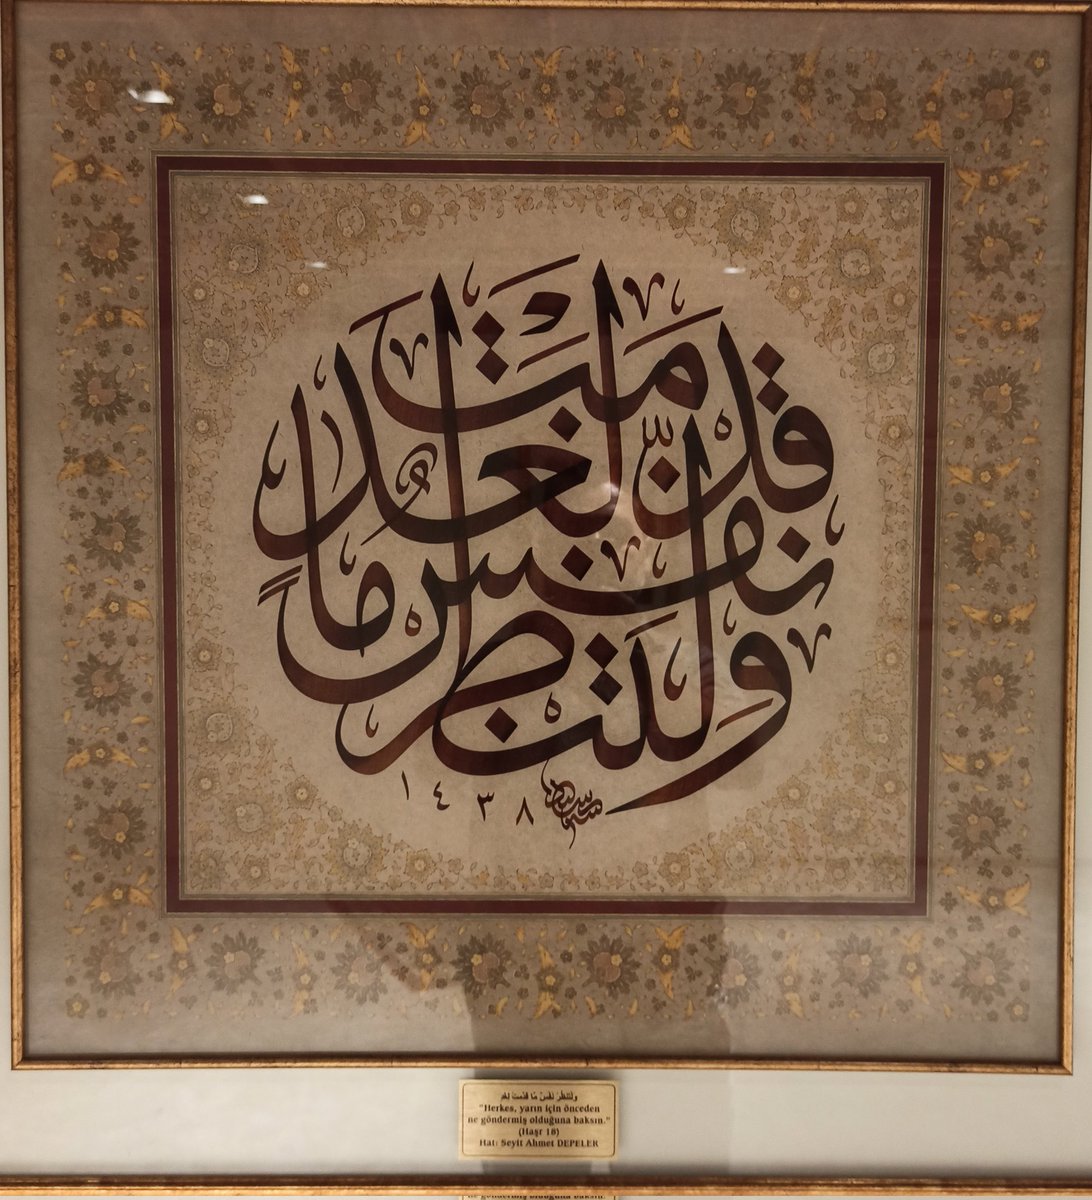 وَلْتَنْظُرْ نَفْسٌ مَا قَدَّمَتْ لِغَدٍ
١٤٣٨
وَلْتَنْظُرْ نَفْسٌ مَا قَدَّمَتْ لِغَدٍ
"Herkes, yarın için önceden
ne göndermiş olduğuna baksın."
(Haşr 18)
Hat: Seyit Ahmet DEPELER